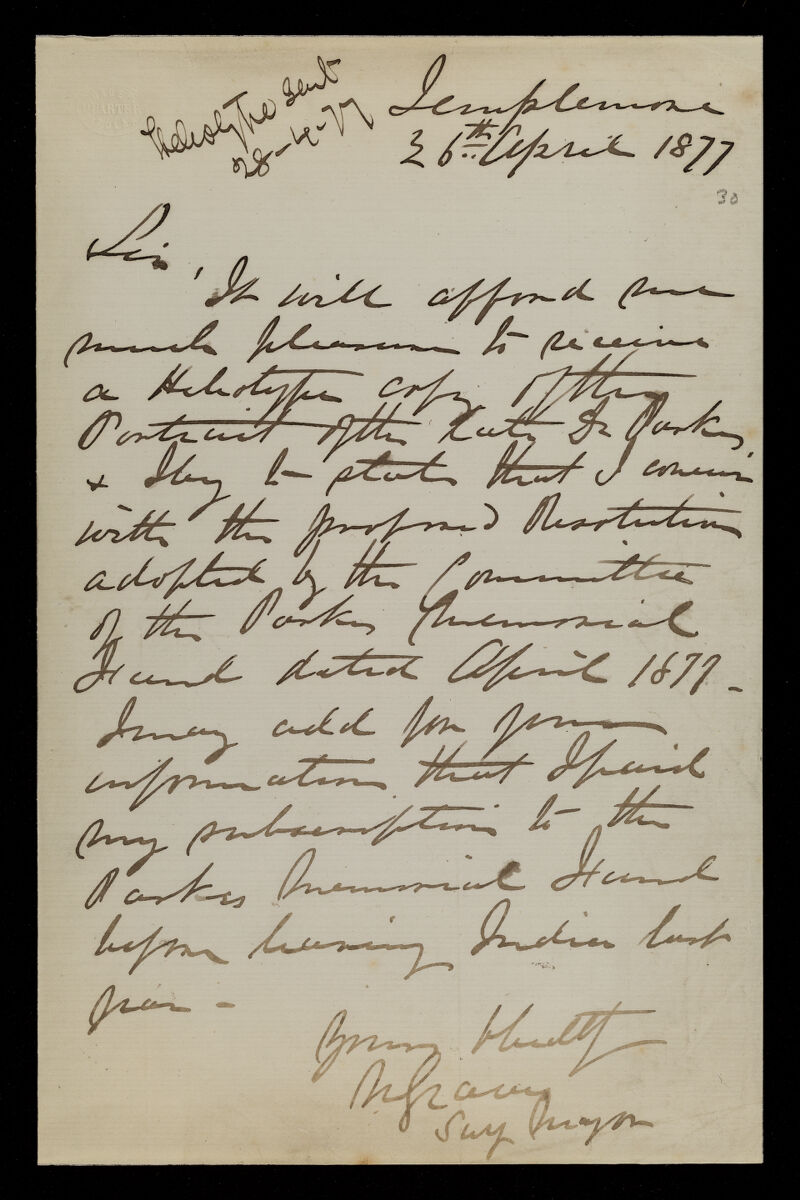 Heliotype Sent
28-4-77
Templemore
26th April 1877
30
Sir,
It will afford me
much pleasure to receive
a Heliotype copy of the
Portrait of the Late Dr Parkes,
+ I beg to state that I concur
with the proposed Resolution
adopted by the Committee
of the Parkes Memorial
Fund dated April 1877 -
I may add for your
information that I paid
my subscription to the
Parkes Memorial Fund
before leaving India last
year -
Yours
Surg Major